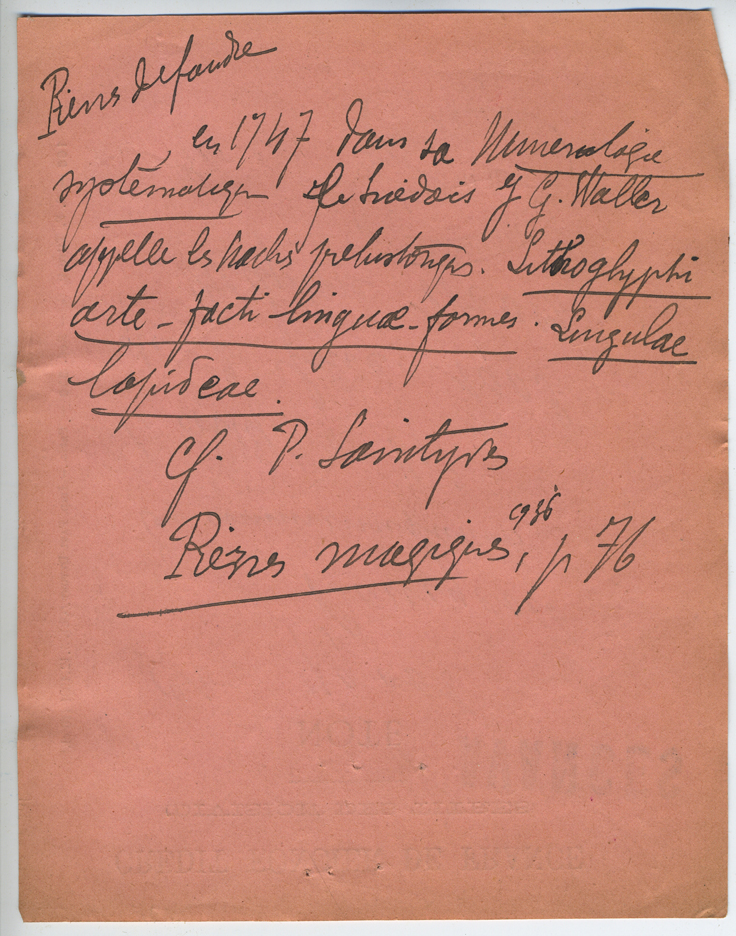 Pierres de foudre
en 1747 dans sa Minéralogie
systématique le suédois J G. Waller
appelle les haches préhistoriques. Lithoglyphi
arte-facti linguæ-formes. Lingulae
lapideae.
cf. P. Saintyves
Pierres magiques, 1936, p 76